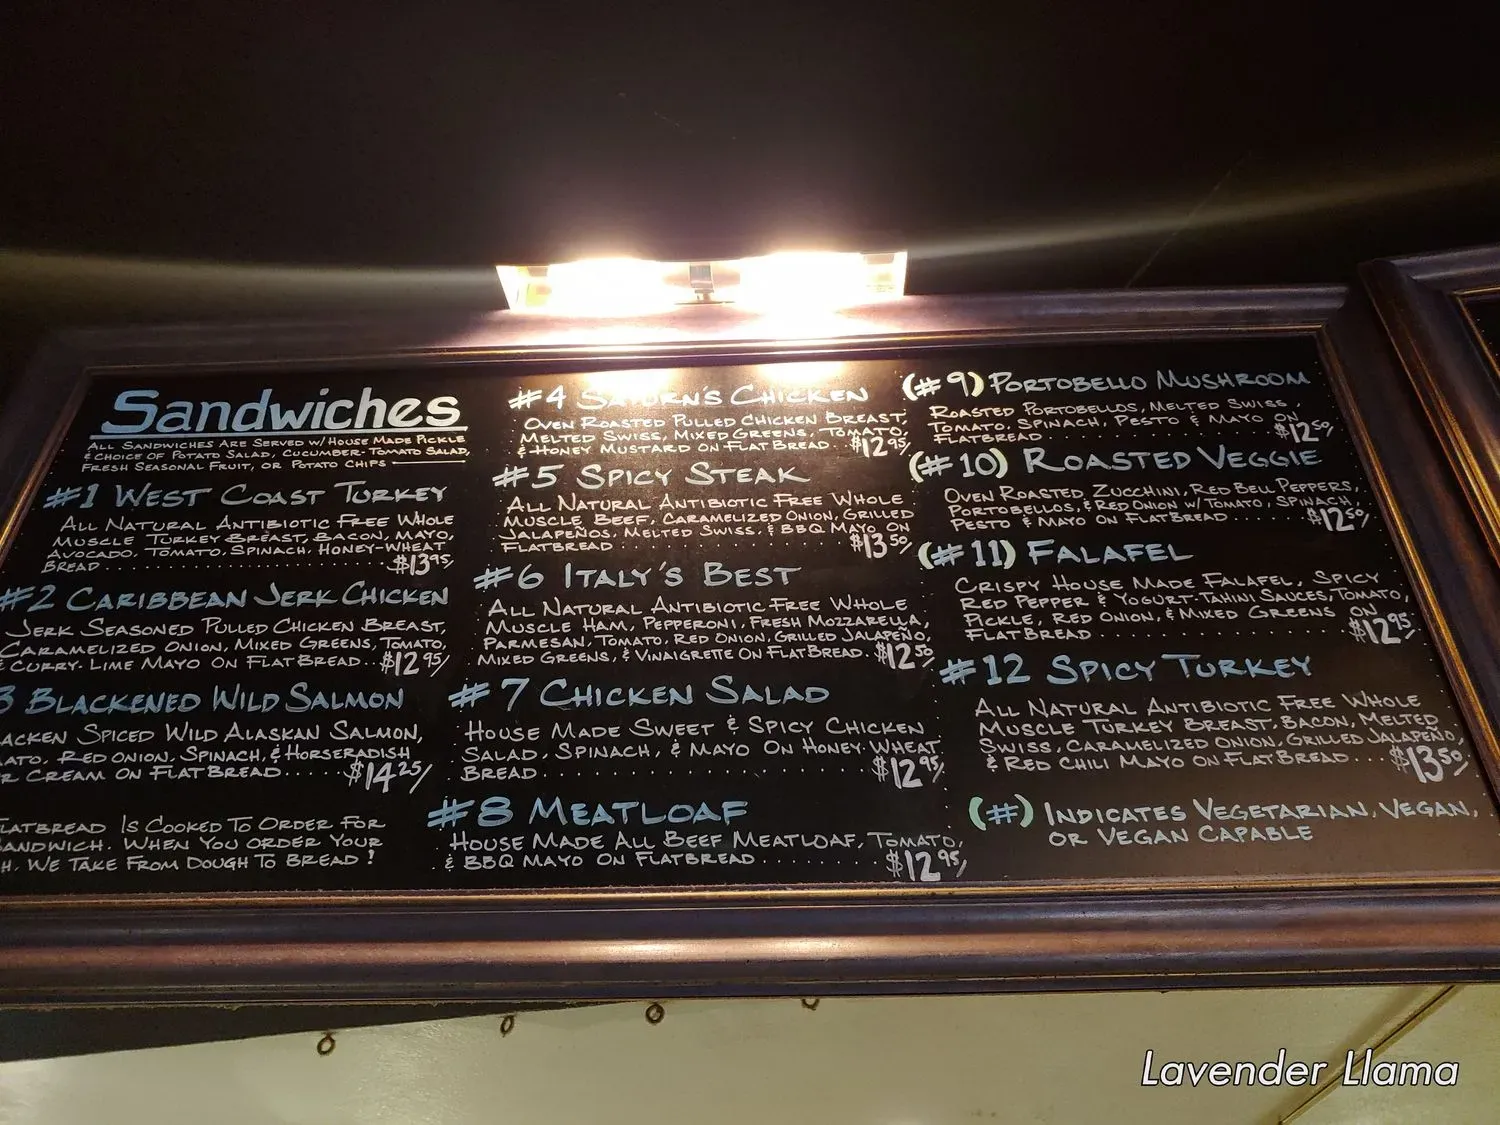 Sandwiches
ALL SANDWICHES ARE SERVED W/ HOUSE MADE PICKLE
& CHOICE OF POTATO SALAD, CUCUMBER-TOMATO SALAD,
FRESH SEASONAL FRUIT, OR POTATO CHIPS
#1 WEST COAST TURKEY
ALL NATURAL ANTIBIOTIC FREE WHOLE
MUSCLE TURKEY BREAST, BACON, MAYO,
AVOCADO, TOMATO, SPINACH, HONEY-WHEAT
BREAD . . . . . . . . . . $13.95/
#2 CARIBBEAN JERK CHICKEN
JERK SEASONED PULLED CHICKEN BREAST,
CARAMELIZED ONION, MIXED GREENS, TOMATO,
& CURRY-LIME MAYO ON FLATBREAD . . $12.95/
3 BLACKENED WILD SALMON
ACKEN SPICED WILD ALASKAN SALMON,
ATO, RED ONION, SPINACH, & HORSERADISH
R CREAM ON FLATBREAD . . . . . $14.25/
LATBREAD IS COOKED TO ORDER FOR
ANDWICH. WHEN YOU ORDER YOUR
H, WE TAKE FROM DOUGH TO BREAD!
#4 SATURN'S CHICKEN
OVEN ROASTED PULLED CHICKEN BREAST,
MELTED SWISS, MIXED GREENS, TOMATO,
& HONEY MUSTARD ON FLATBREAD . . $12.95/
#5 SPICY STEAK
ALL NATURAL ANTIBIOTIC FREE WHOLE
MUSCLE BEEF, CARAMELIZED ONION, GRILLED
JALAPEÑOS, MELTED SWISS, & BBQ MAYO ON
FLATBREAD . . . . . . . . . . $13.50/
#6 ITALY'S BEST
ALL NATURAL ANTIBIOTIC FREE WHOLE
MUSCLE HAM, PEPPERONI, FRESH MOZZARELLA,
PARMESAN, TOMATO, RED ONION, GRILLED JALAPEÑO,
MIXED GREENS, & VINAIGRETTE ON FLATBREAD . . $12.50/
#7 CHICKEN SALAD
HOUSE MADE SWEET & SPICY CHICKEN
SALAD, SPINACH, & MAYO ON HONEY-WHEAT
BREAD . . . . . . . . . . $12.95/
#8 MEATLOAF
HOUSE MADE ALL BEEF MEATLOAF, TOMATO,
& BBQ MAYO ON FLATBREAD . . . . . . . . $12.95/
(#9) PORTOBELLO MUSHROOM
ROASTED PORTOBELLOS, MELTED SWISS,
TOMATO, SPINACH, PESTO & MAYO ON
FLATBREAD . . . . . . . . . . $12.50/
(#10) ROASTED VEGGIE
OVEN ROASTED, ZUCCHINI, RED BELL PEPPERS,
PORTOBELLOS, & RED ONION W/ TOMATO, SPINACH,
PESTO & MAYO ON FLATBREAD . . . . . . . $12.50/
(#11) FALAFEL
CRISPY HOUSE MADE FALAFEL, SPICY
RED PEPPER & YOGURT-TAHINI SAUCES, TOMATO,
PICKLE, RED ONION, & MIXED GREENS ON
FLATBREAD . . . . . . . . . . $12.95/
#12 SPICY TURKEY
ALL NATURAL ANTIBIOTIC FREE WHOLE
MUSCLE TURKEY BREAST, BACON, MELTED
SWISS, CARAMELIZED ONION, GRILLED JALAPEÑO,
& RED CHILI MAYO ON FLATBREAD . . . $13.50/
(#) INDICATES VEGETARIAN, VEGAN,
OR VEGAN CAPABLE
Lavender Llama